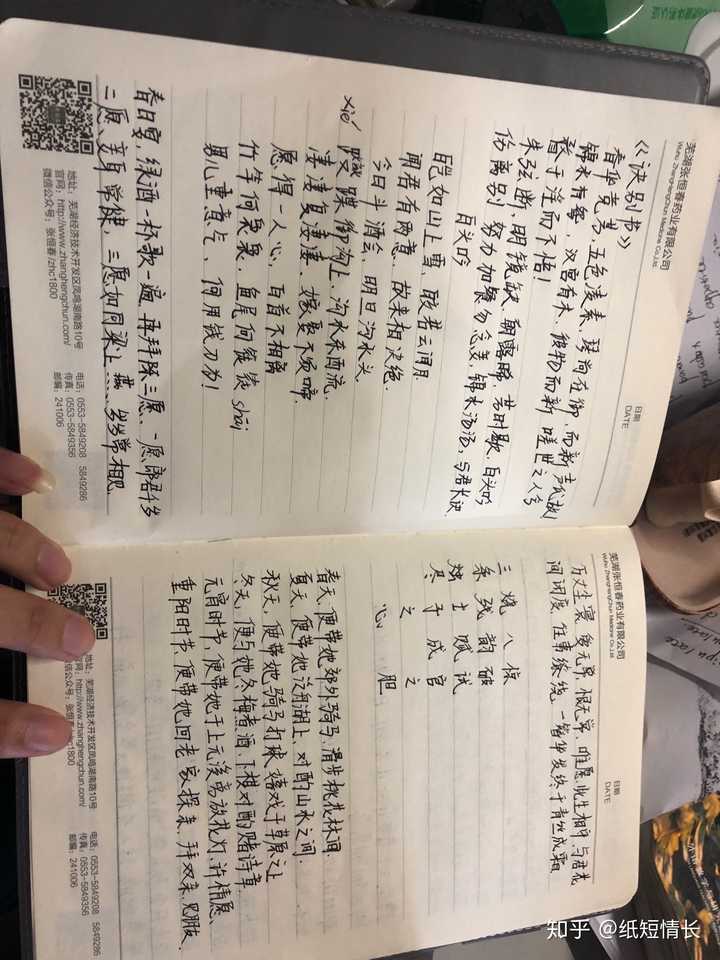 芜湖张恒春药业有限公司
Wuhu ZhangHengChun Medicine Co.,Ltd.
日期
DATE
《诀别书》
春华竞芳,五色凌素,琴尚在御,而新声代故!
锦水有鸳,汉宫有木,彼物而新,嗟世之人兮
瞀于淫而不悟!
朱弦断,明镜缺,朝露晞,芳时歇,白头吟
伤离别,努力加餐勿念妾,锦水汤汤,与君长诀
白头吟
皑如山上雪,皎若云间月.
闻君有两意,故来相决绝.
今日斗酒会,明旦沟水头
xiè
躞蹀御沟上,沟水东西流.
凄凄复凄凄,嫁娶不须啼.
愿得一人心,白首不相离
竹竿何袅袅,鱼尾何簁簁 shāi
男儿重意气,何用钱刀为!
春日宴,绿酒一杯歌一遍,再拜陈三愿、一愿郎君千岁
二愿、妾身常健,三愿如同梁上燕……岁岁常相见
地址:芜湖经济技术开发区凤鸣湖南路10号
电话:0553-5849208 5849286
官网:http://www.zhanghengchun.com/
传真:0553-5849356
微信公众号:张恒春/zhc1800
邮编:241006
芜湖张恒春药业有限公司
Wuhu ZhangHengChun Medicine Co.,Ltd.
日期
DATE
万丈尘寰,爱无岸,恨无岸,唯愿此生相守,与君花
间闲度,任事缭绕,一笛华发终于青丝成霜
三烧八假
条残韵破
烛士赋试
尽子成宫
之之
心胆
春天,便带她郊外骑马,漫步桃花林间.
夏天,便带她泛舟湖上,对酌山水之间
秋天,便带她骑马打球,嬉戏于草原之上
冬天,便与她赏梅煮酒,下棋对酌赌诗章.
元宵时节,便带她于上元深夜放花灯,许情愿、
重阳时节,便带她回老家探亲,拜双亲,见朋友、
地址:芜湖经济技术开发区凤鸣湖南路10号
电话:0553-5849208 5849286
官网:http://www.zhanghengchun.com/
传真:0553-5849356
微信公众号:张恒春/zhc1800
邮编:241006
知乎 @纸短情长